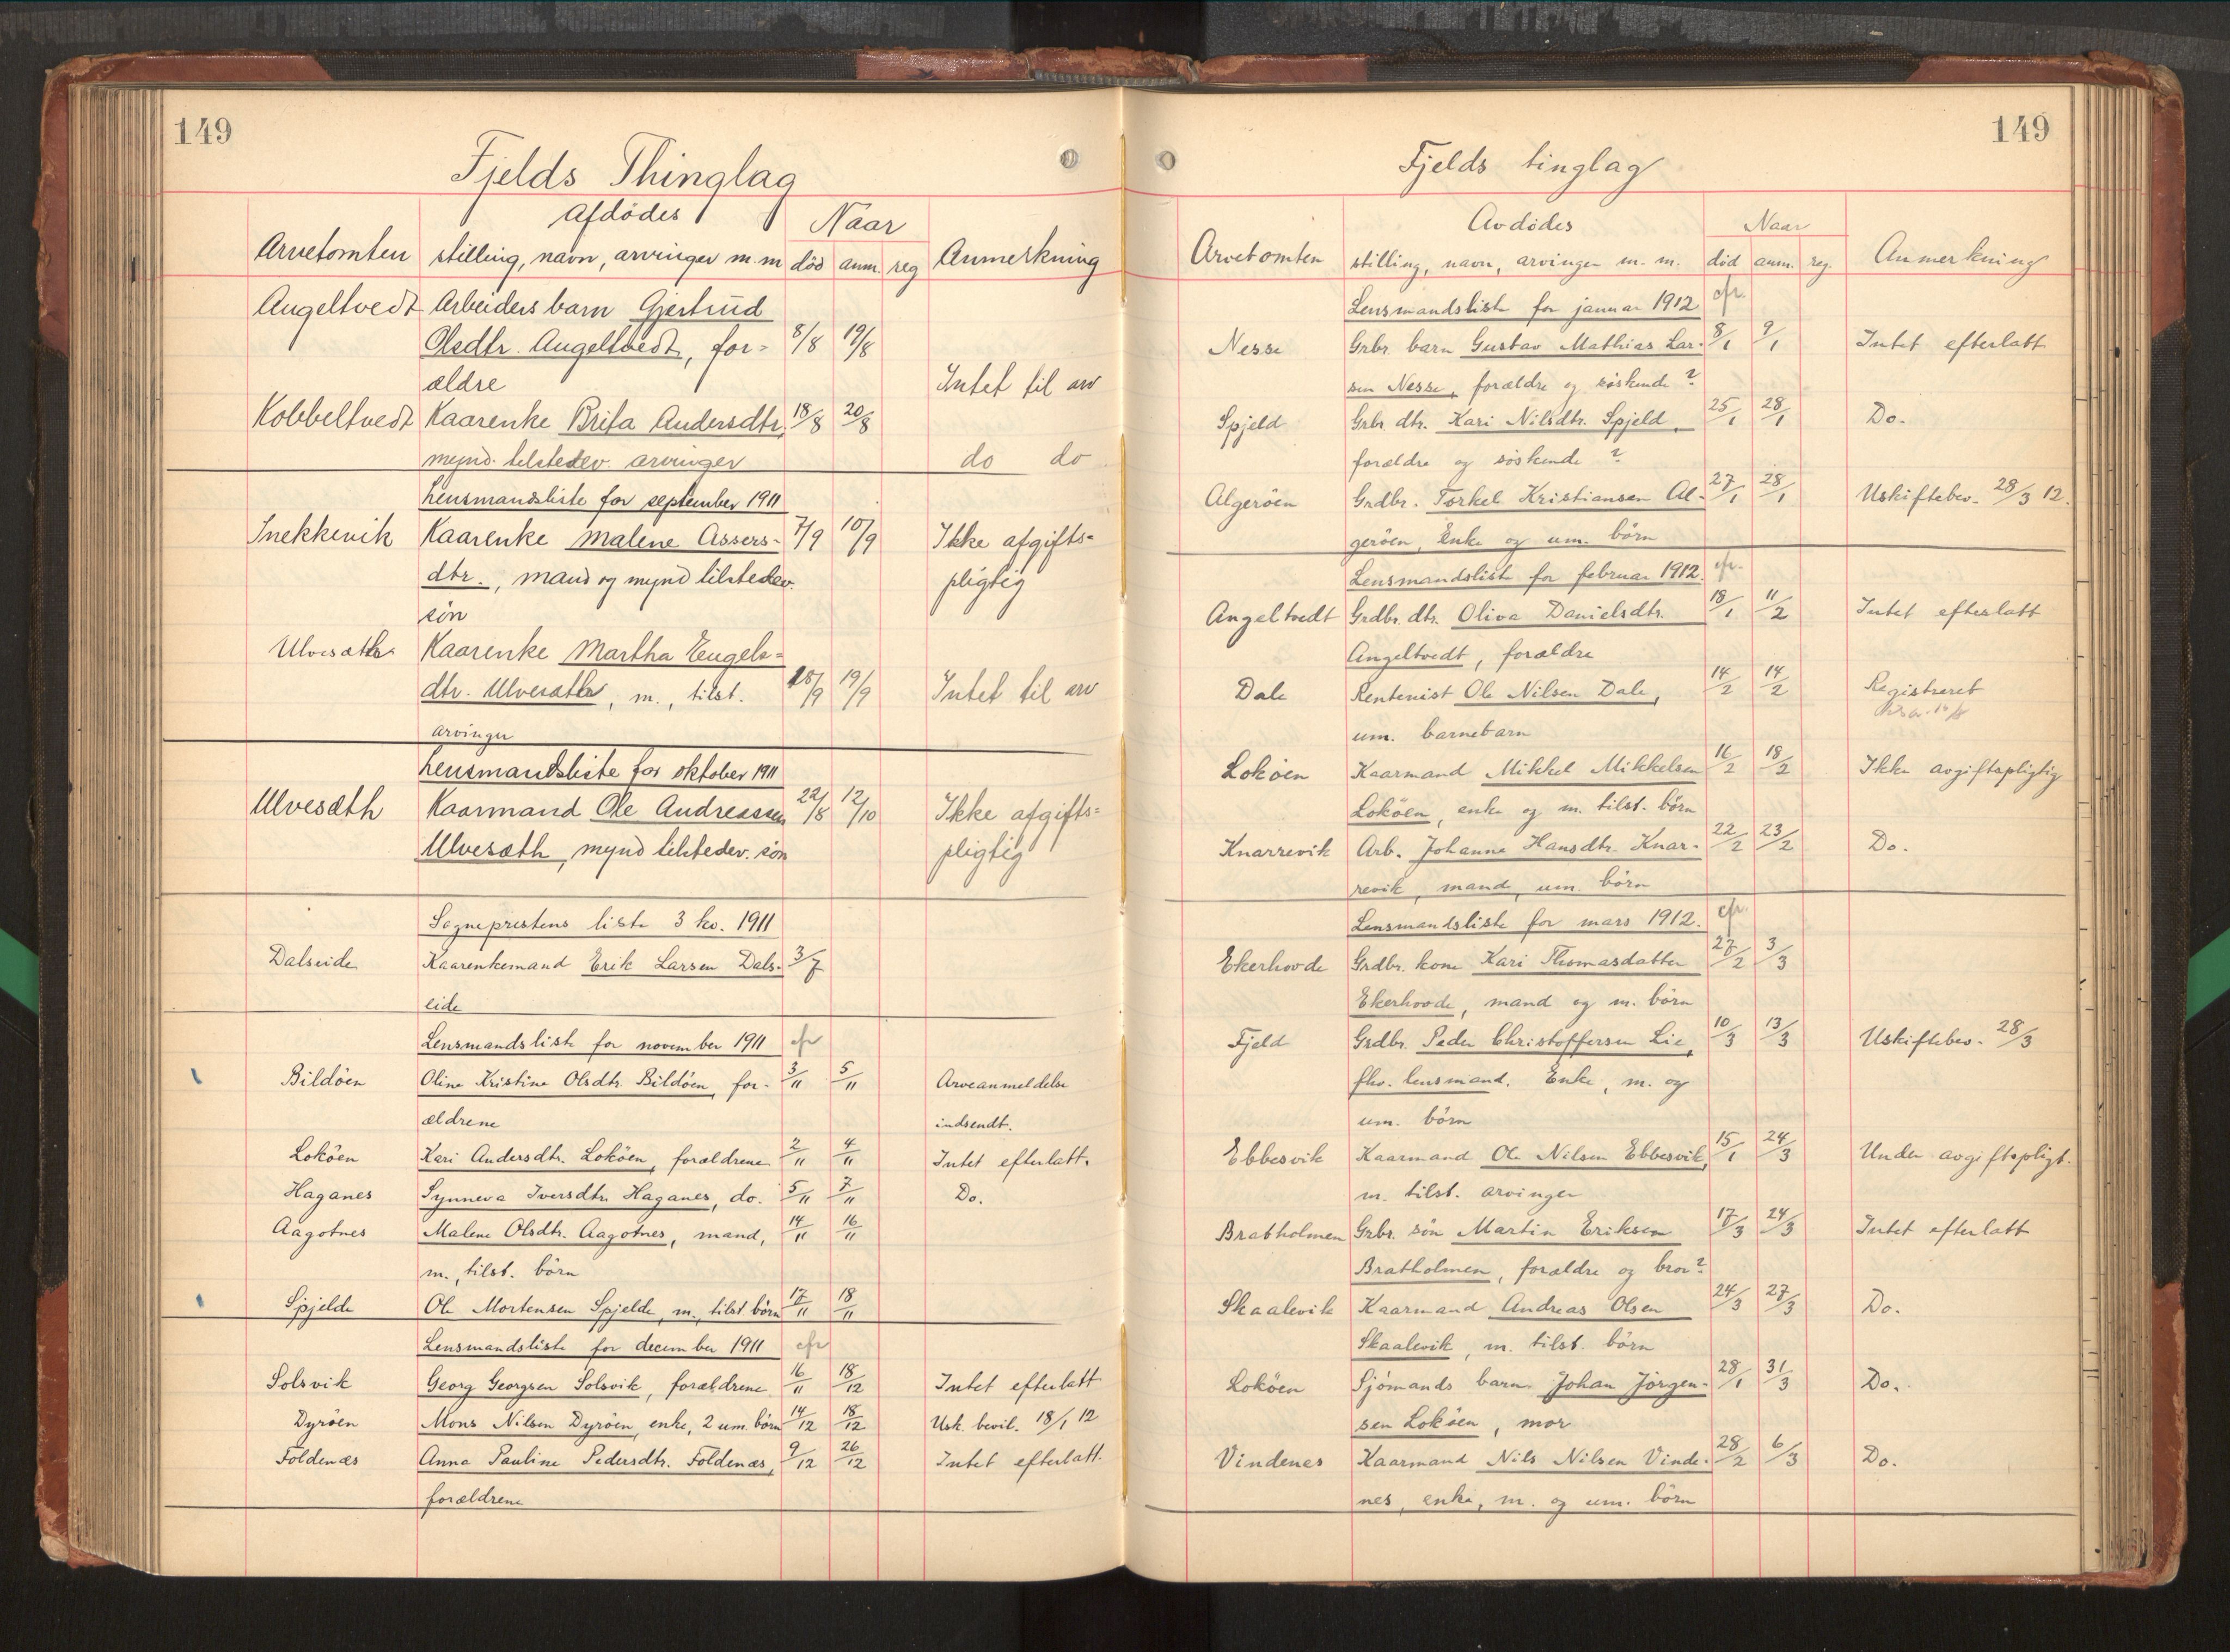 149
Fjelds Thinglag
Afdödes Naar
Arvetomten stilling, navn, arvinger m. m död anm. reg Anmerkning
Angeltvedt Arbeiders barn Gjertrud
Olsdtr. Angeltvedt, for= 8/8 19/8
ældre Intet til arv
Kobbeltvedt Kaarenke Brita Andersdtr, 18/8 20/8
mynd. tilstedev. arvinger do do
Lensmandsliste for september 1911
Snekkevik Kaarenke Malene Assers- 7/9 10/9 Ikke afgifts=
dtr., mand og mynd tilstedev. pligtig
sön
Ulvesæth Kaarenke Martha Engels=
dtr. Ulvesæth, m., tilst. 18/9 19/9 Intet til arv
arvinger
Lensmandsliste for oktober 1911
Ulvesæth Kaarmand Ole Andreassen 22/8 12/10 Ikke afgifts=
Ulvesæth, mynd tilstedev. sön pligtig
Sogneprestens liste 3 kv. 1911
Dalseide Kaarenkemand Erik Larsen Dals- 3/7
eide
Lensmandsliste for november 1911 cfr
Bildöen Oline Kristine Olsdtr. Bildöen, for- 3/11 5/11 Arveanmeldelse
ældrene indsendt.
Loköen Kari Andersdtr. Loköen, forældrene 2/11 4/11 Intet efterlatt.
Haganes Synneva Iversdtr. Haganes, do. 5/11 7/11 Do.
Aagotnes Malene Olsdtr. Aagotnes, mand, 14/11 16/11
m., tilst. börn
Spjelde Ole Mortensen Spjelde, m., tilst börn 17/11 18/11
Lensmandsliste for december 1911 cfr
Solsvik Georg Georgsen Solsvik, forældrene 16/11 18/12 Intet efterlatt
Dyröen Mons Nilsen Dyröen, enke, 2 um. börn 14/12 18/12 Usk. bevil. 18/1 12
Foldenæs Anna Pauline Pedersdtr. Foldenæs, 9/12 26/12 Intet efterlatt.
forældrene
149
Fjelds tinglag
Avdödes Naar
Arvetomten stilling, navn, arvinger m. m. död anm. reg. Anmerkning
Lensmandsliste for januar 1912 cfr.
Nesse Grbr. barn Gustav Mathias Lar- 8/1 9/1 Intet efterlatt
sen Nesse, forældre og söskende ?
Spjeld Grbr. dtr. Kari Nilsdtr. Spjeld, 25/1 28/1 Do.
forældre og söskende ?
Algeröen Grdbr. Torkel Kristiansen Al- 27/1 28/1 Uskiftebev. 28/3 12.
geröen, Enke og um. börn
Lensmandsliste for februar 1912. cfr.
Angeltvedt Grdbr. dtr. Oliva Danielsdtr. 18/1 11/2 Intet efterlatt
Angeltvedt, forældre
Dale Rentenist Ole Nilsen Dale, 14/2 14/2 Registreret
um. barnebarn
Loköen Kaarmand Mikkel Mikkelsen 16/2 18/2 Ikke avgiftspligtig
Loköen, enke og m. tilst. börn
Knarrevik Arb. Johanne Hansdtr. Knar- 22/2 23/2 Do.
revik, mand, um. börn
Lensmandsliste for mars 1912. cfr.
Ekerhovde Grdbr. kone Kari Thomasdatter 27/2 3/3
Ekerhovde, mand og m. börn
Fjeld Grdbr. Peder Christoffersen Lie, 10/3 13/3 Uskiftebev. 28/3
fhv. lensmand. Enke, m. og
um. börn
Ebbesvik Kaarmand Ole Nilsen Ebbesvik, 15/1 24/3 Under avgiftspligt.
m. tilst. arvinger
Bratholmen Grbr. sön Martin Eriksen 17/3 24/3 Intet efterlatt
Bratholmen, forældre og bror ?
Skaalevik Kaarmand Andreas Olsen 24/3 27/3 Do.
Skaalevik, m. tilst. börn
Loköen Sjömands barn Johan Jörgen- 28/1 31/3 Do.
sen Loköen, mor
Vindenes Kaarmand Nils Nilsen Vinde- 28/2 6/3 Do.
nes, enke, m. og um. börn